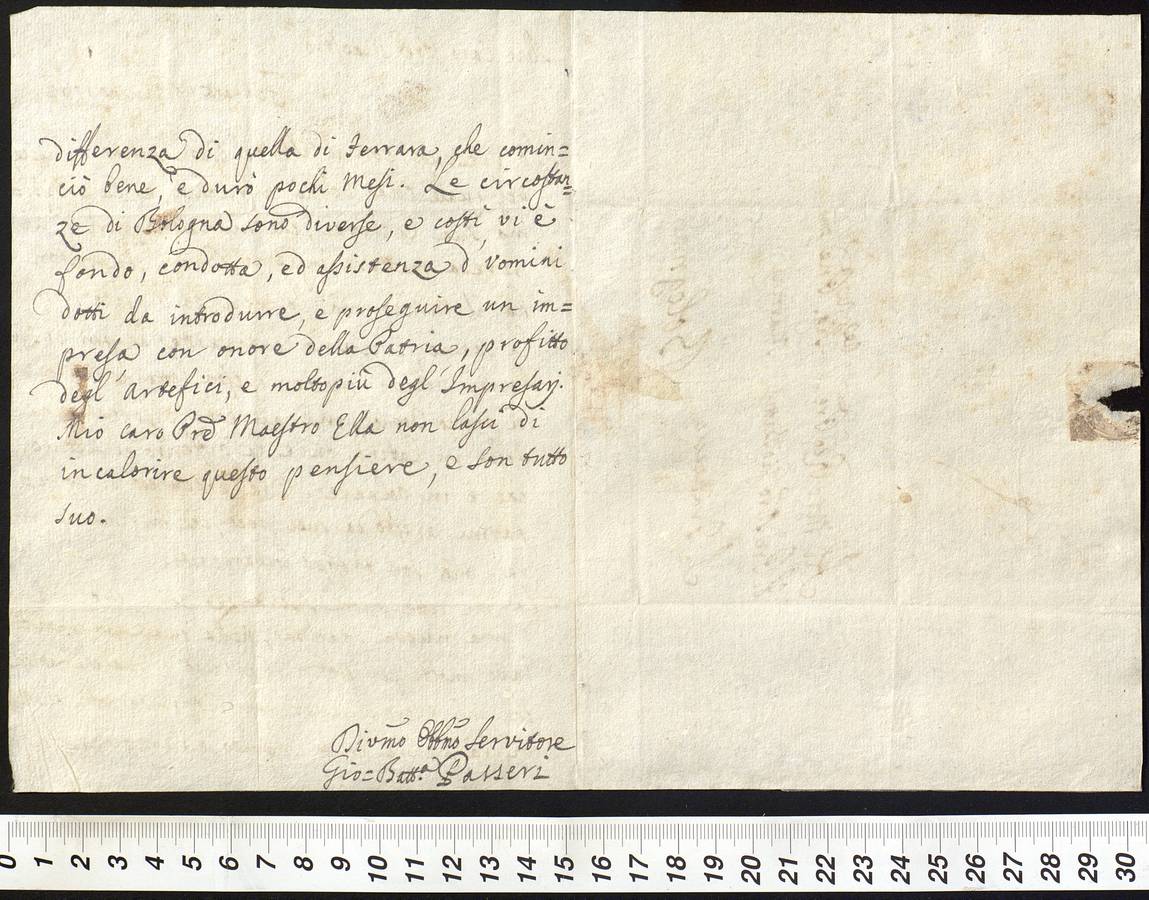 differenza di quella di Ferrara, che comin=
ciò bene, e durò pochi Mesi. Le circostan=
ze di Bologna sono diverse, e costi vi è
fondo, condotta, ed assistenza d'Vomini
dotti da introdurre, e proseguire un im=
presa con onore della Patria, profitto
degl'Artefici, e molto più degl'Impresarj.
Mio caro Prẽ Maestro Ella non lasci di
incalorire questo pensiere, e son tutto
suo.
Divmo Obbmo Servitore
Gio=Batta Passeri
0 1 2 3 4 5 6 7 8 9 10 11 12 13 14 15 16 17 18 19 20 21 22 23 24 25 26 27 28 29 30